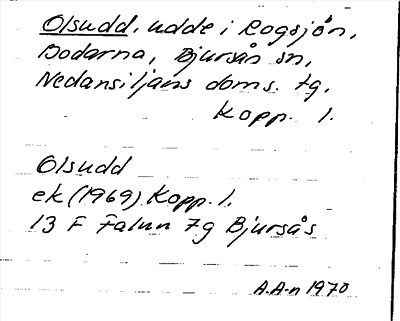 Olsudd, udde i Rogsjön,
Bodarna, Bjursås sn,
Nedansiljans doms. tg,
Kopp. l.
Olsudd
ek (1969) Kopp. l.
13 F Falun 7g Bjursås
A.A-n 1970